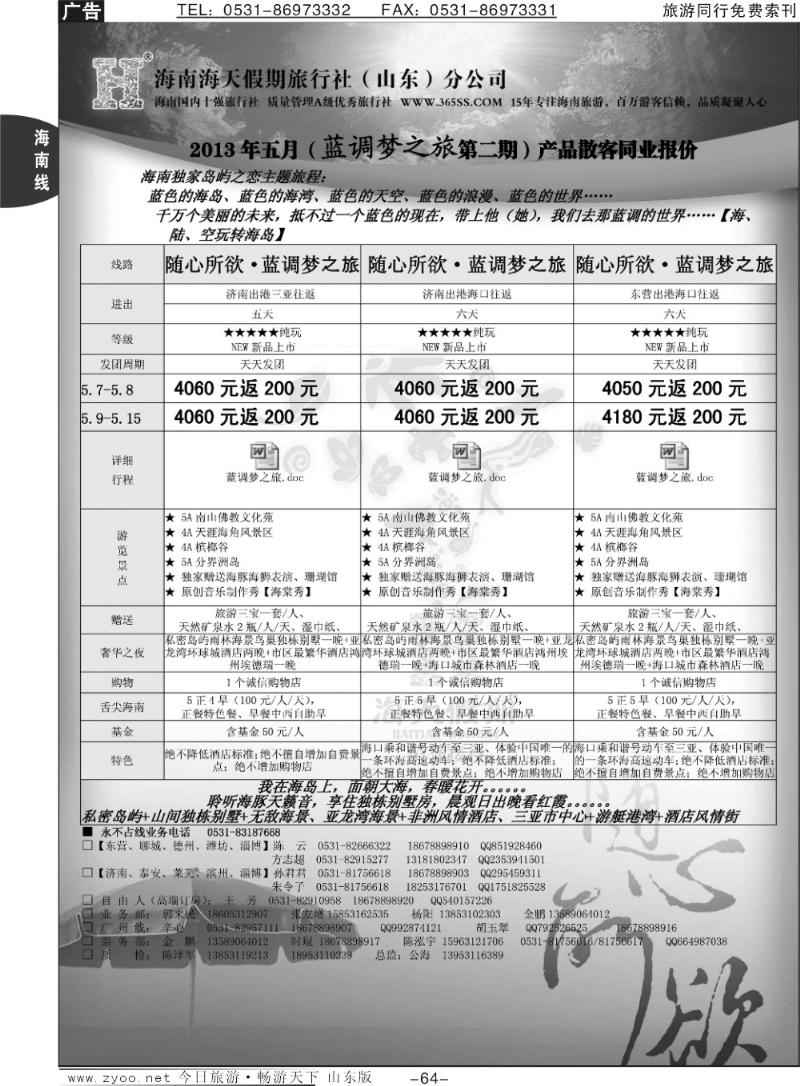 广告
TEL: 0531-86973332 FAX: 0531-86973331
旅游同行免费索刊
海南线
H
海南海天假期旅行社(山东)分公司
海南国内十强旅行社 质量管理A级优秀旅行社 WWW.365SS.COM 15年专注海南旅游,百万游客信赖,品质凝聚人心
2013年五月(蓝调梦之旅第二期)产品散客同业报价
海南独家岛屿之恋主题旅程:
蓝色的海岛、蓝色的海湾、蓝色的天空、蓝色的浪漫、蓝色的世界……
千万个美丽的未来,抵不过一个蓝色的现在,带上他(她),我们去那蓝调的世界……【海、
陆、空玩转海岛】
线路 随心所欲·蓝调梦之旅 随心所欲·蓝调梦之旅 随心所欲·蓝调梦之旅
进出 济南出港三亚往返 济南出港海口往返 东营出港海口往返
五天 六天 六天
等级 ★★★★★纯玩 ★★★★★纯玩 ★★★★★纯玩
NEW 新品上市 NEW 新品上市 NEW 新品上市
发团周期 天天发团 天天发团 天天发团
5.7-5.8 4060 元返 200 元 4060 元返 200 元 4050 元返 200 元
5.9-5.15 4060 元返 200 元 4060 元返 200 元 4180 元返 200 元
详细行程 蓝调梦之旅.doc 蓝调梦之旅.doc 蓝调梦之旅.doc
游览景点
★ 5A 南山佛教文化苑 ★ 5A 南山佛教文化苑 ★ 5A 南山佛教文化苑
★ 4A 天涯海角风景区 ★ 4A 天涯海角风景区 ★ 4A 天涯海角风景区
★ 4A 槟榔谷 ★ 4A 槟榔谷 ★ 4A 槟榔谷
★ 5A 分界洲岛 ★ 5A 分界洲岛 ★ 5A 分界洲岛
★ 独家赠送海豚海狮表演、珊瑚馆 ★ 独家赠送海豚海狮表演、珊瑚馆 ★ 独家赠送海豚海狮表演、珊瑚馆
★ 原创音乐制作秀【海棠秀】 ★ 原创音乐制作秀【海棠秀】 ★ 原创音乐制作秀【海棠秀】
赠送 旅游三宝一套/人、 旅游三宝一套/人、 旅游三宝一套/人、
天然矿泉水2瓶/人/天、湿巾纸、 天然矿泉水2瓶/人/天、湿巾纸、 天然矿泉水2瓶/人/天、湿巾纸、
奢华之夜
私密岛屿雨林海景鸟巢独栋别墅一晚+亚龙湾环球城酒店两晚+市区最繁华酒店鸿州埃德瑞一晚
私密岛屿雨林海景鸟巢独栋别墅一晚+亚龙湾环球城酒店两晚+市区最繁华酒店鸿州埃德瑞一晚+海口城市森林酒店一晚
私密岛屿雨林海景鸟巢独栋别墅一晚+亚龙湾环球城酒店两晚+市区最繁华酒店鸿州埃德瑞一晚+海口城市森林酒店一晚
购物 1个诚信购物店 1个诚信购物店 1个诚信购物店
舌尖海南 5正4早(100元/人/天), 5正5早(100元/人/天), 5正5早(100元/人/天),
正餐特色餐、早餐中西自助早 正餐特色餐、早餐中西自助早 正餐特色餐、早餐中西自助早
基金 含基金50元/人 含基金50元/人 含基金50元/人
特色
绝不降低酒店标准;绝不擅自增加自费景点;绝不增加购物店
海口乘和谐号动车至三亚、体验中国唯一的一条环海高速动车;绝不降低酒店标准;绝不擅自增加自费景点;绝不增加购物店
海口乘和谐号动车至三亚、体验中国唯一的一条环海高速动车;绝不降低酒店标准;绝不擅自增加自费景点;绝不增加购物店
我在海岛上,面朝大海,春暖花开。。。。。。
聆听海豚天籁音,享住独栋别墅房,晨观日出晚看红霞。。。。。。
私密岛屿+山间独栋别墅+无敌海景、亚龙湾海景+非洲风情酒店、三亚市中心+游艇港湾+酒店风情街
■ 永不占线业务电话 0531-83187668
□【东营、聊城、德州、潍坊、淄博】陈 云 0531-82666322 18678898910 QQ851928460
方志超 0531-82915277 13181802347 QQ2353941501
□【济南、泰安、莱芜、滨州、淄博】孙君君 0531-81756618 18678898903 QQ295459311
朱令了 0531-81756618 18253176701 QQ1751825528
□ 自由人(高端订房): 王 芳 0531-82910958 18678898920 QQ540157226
□ 业务部: 郭来民 18605312907 张友增 15853162535 杨阳 13853102303 金鹏 13589064012
□ 广州线: 辛心 0531-82957111 18678898907 QQ992874121 胡玉翠 QQ792526525 18678898916
□ 票务部: 金 鹏 13589064012 时琨 18678898917 陈泓宇 15963121706 0531-81756616/81756617 QQ664987038
□ 质 检: 陈泽军 13853119213 18953110239 总监:公海 13953116389
随心所欲
www.zyoo.net 今日旅游·畅游天下 山东版
-64-